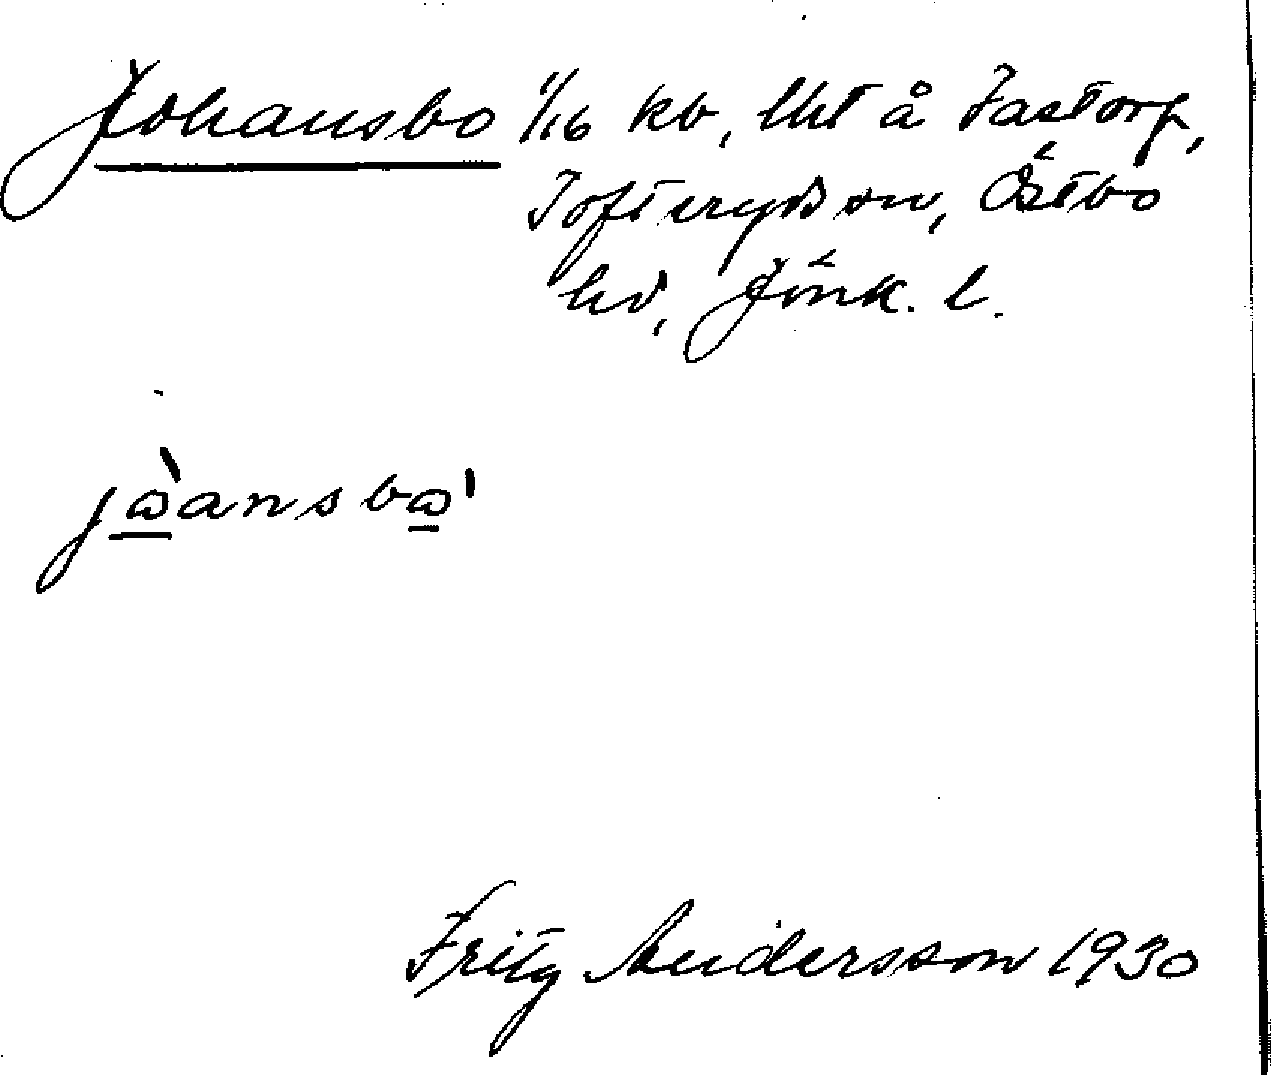 Johansbo 1/16 kv, lht å Tastorp,
Tofteryds sn, Östbo
hd, Jönk. l.
jὼansbω'
Fritz Andersson 1930